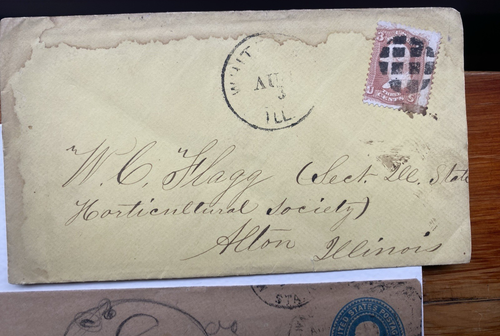 WHIT
AU
3
ILL.
3
"W. C. Flagg (Sect. Ill. State
Horticultural Society)
Alton Illinois
STA